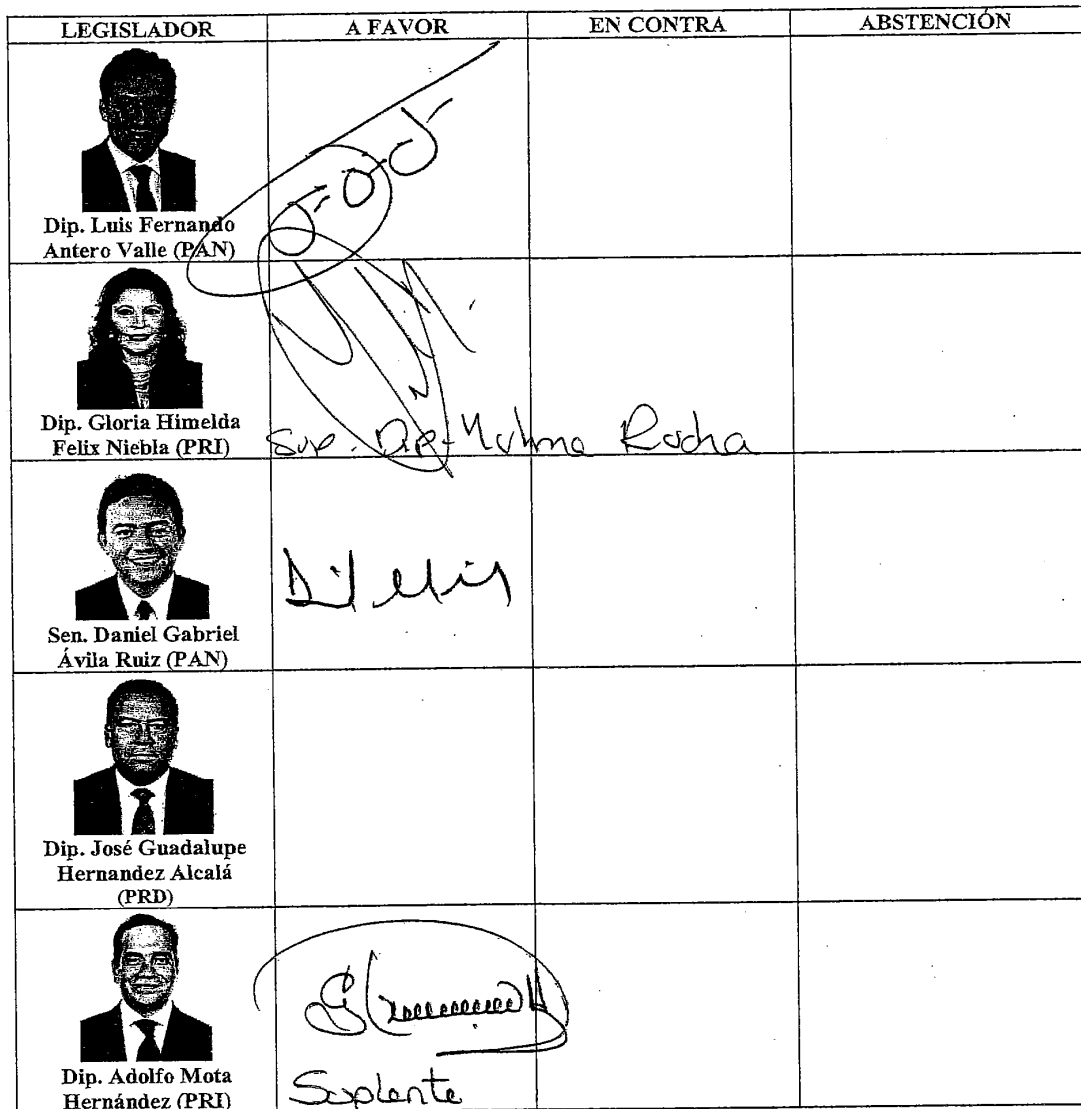 LEGISLADOR A FAVOR EN CONTRA ABSTENCIÓN
Dip. Luis Fernando
Antero Valle (PAN)
Dip. Gloria Himelda
Felix Niebla (PRI)
Sup. Dip. Rocha
Sen. Daniel Gabriel
Ávila Ruiz (PAN)
Dip. José Guadalupe
Hernandez Alcalá
(PRD)
Dip. Adolfo Mota
Hernández (PRI)
Suplente